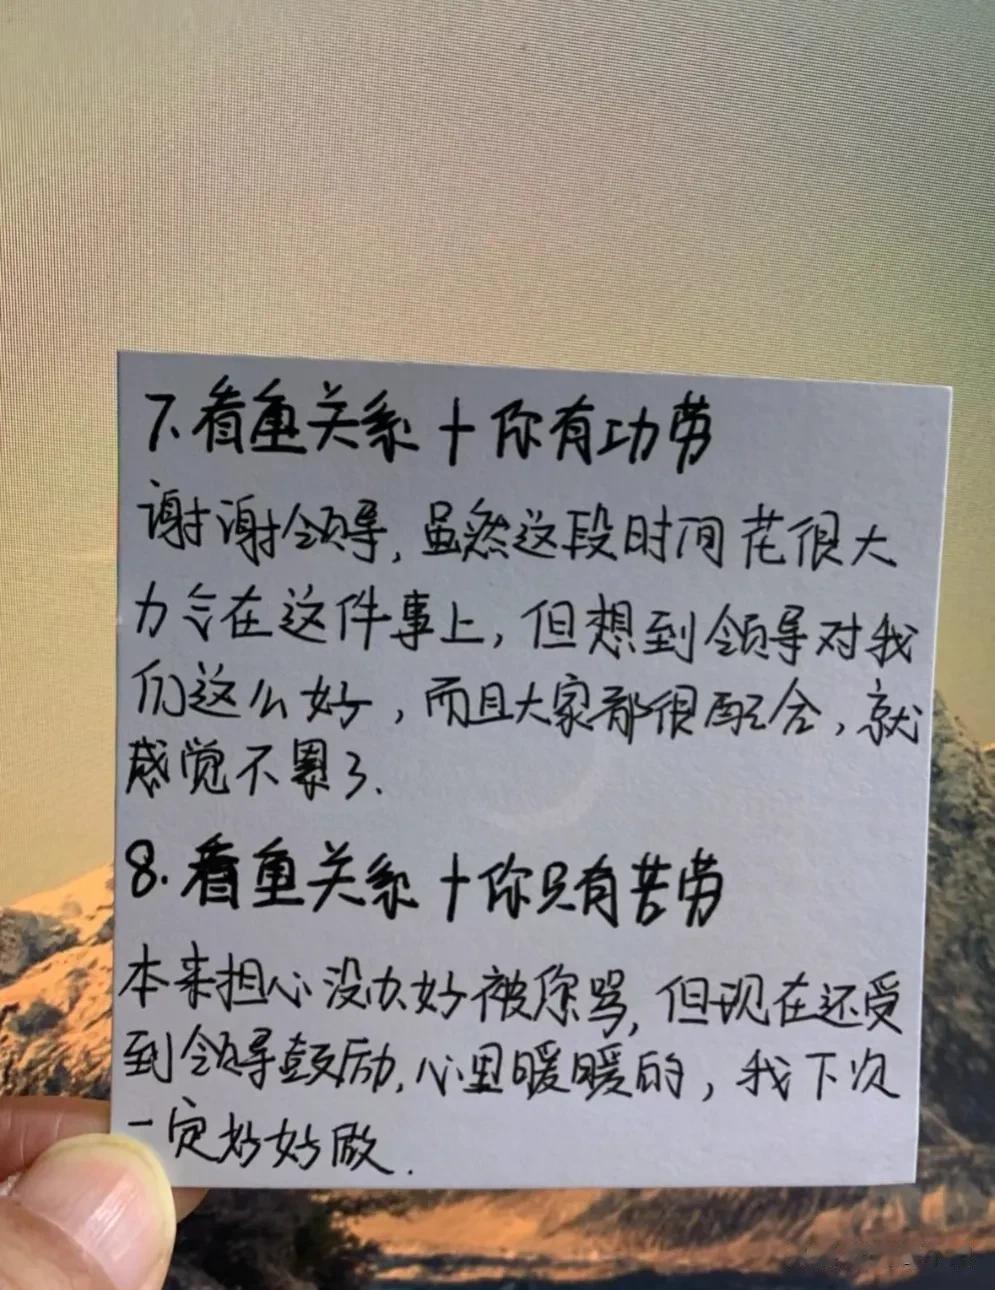 7、看重关系+你有功劳
谢谢领导,虽然这段时间花很大
力气在这件事上,但想到领导对我
们这么好,而且大家都很配合,就
感觉不累了.
8.看重关系+你只有苦劳
本来担心没办好被您骂,但现在还受
到领导鼓励,心里暖暖的,我下次
一定好好做.